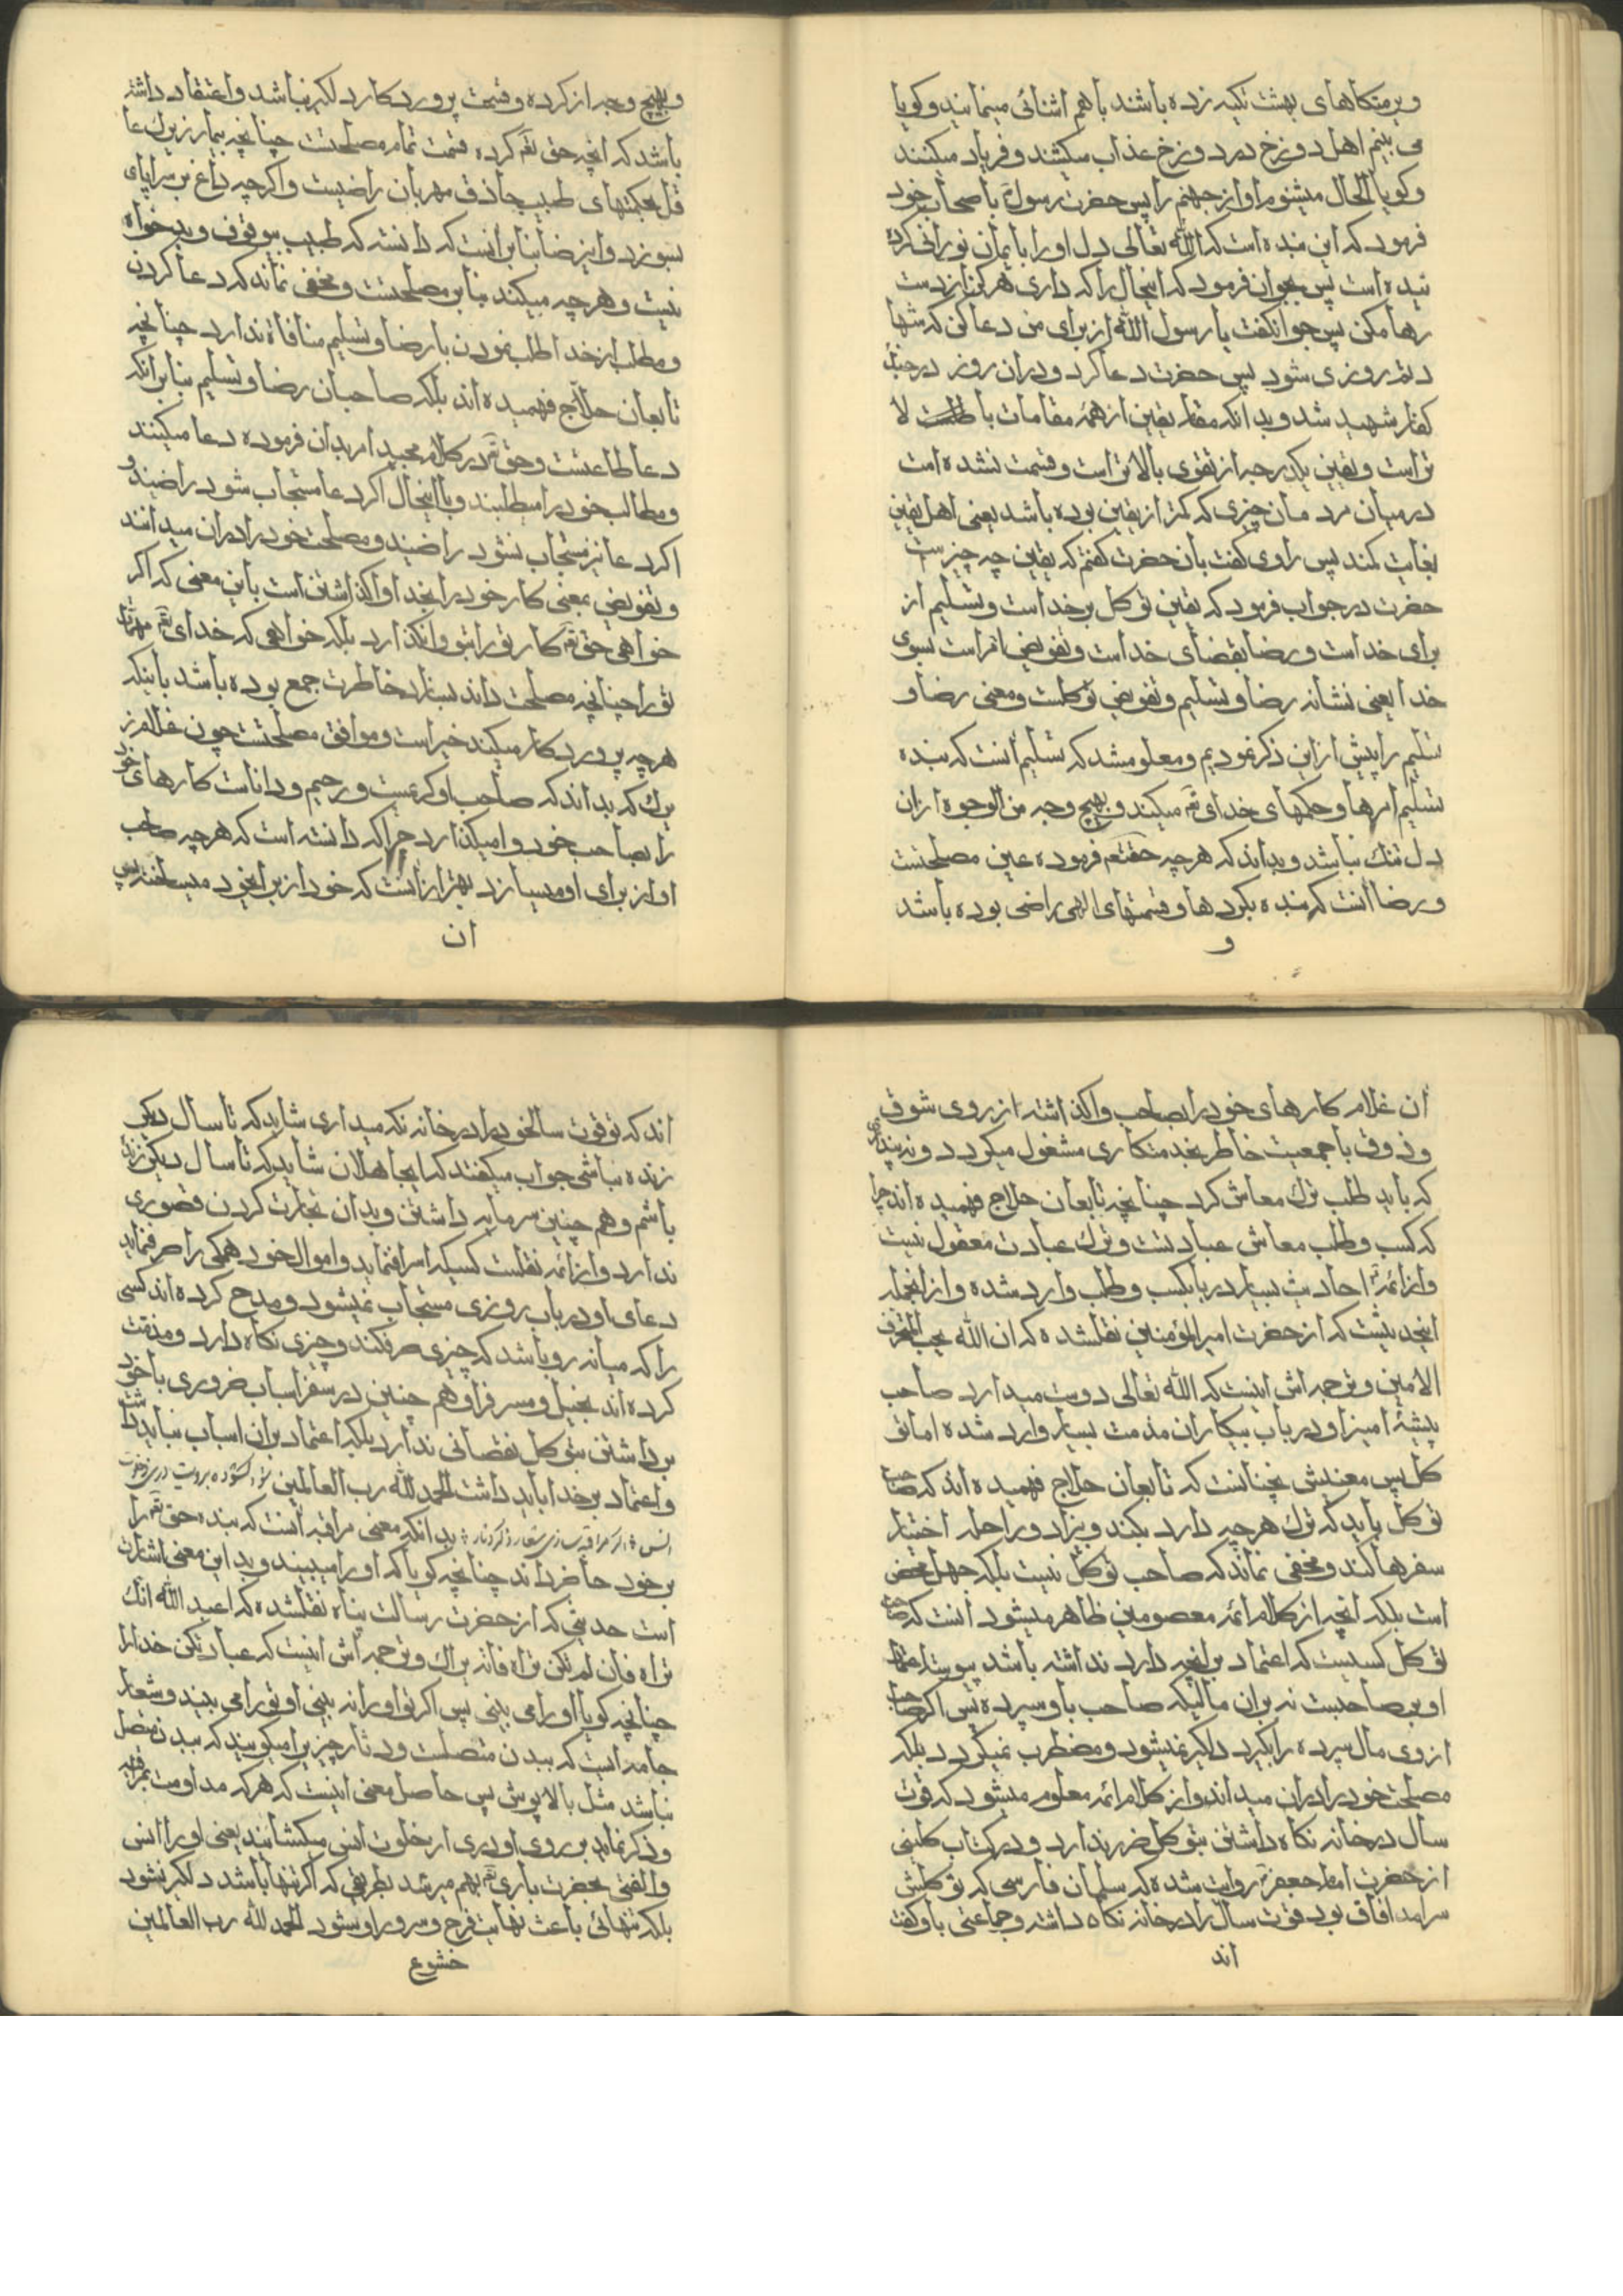 و بر متکاهای بهشت تکیه زده باشند با هم اشنائی مینمایند و کویا
می بینم اهل دوزخ در دوزخ عذاب میکشند و فریاد میکنند
و کویا الحال میشنوم اواز جهنم را پس حضرت رسول باصحاب خود
فرمود که این بنده است که الله تعالی دل او را بایمان نورانی کرده
پس بجوان فرمود که اینحال را که داری هرکز از دست
رها مکن پس جوان کفت یا رسول الله از برای من دعا کن که شهادت
روزی شود پس حضرت دعا کرد و در ان روز در جنک
کفار شهید شد و بدانکه مقام یقین از همه مقامات با لا
تر است و یقین یکدرجه از تقوی بالاتر است و قسمت نشده است
در میان مردمان چیزی که کمتر از یقین بوده باشد یعنی اهل یقین
بغایت کمند پس راوی کفت بان حضرت کفتم که یقین چه چیز ست
حضرت در جواب فرمود که یقین توکل بر خداست و تسلیم از
برای خداست و رضا بقضای خداست و تفویض امر است بسوی
خدا یعنی نشانه رضا و تسلیم و تفویض توکلست و معنی رضا و
تسلیم را پیش از این ذکر نمودیم و معلوم شد که تسلیم انست که بنده
تسلیم امرها و حکمهای خدای تع میکند و بهیچ وجه من الوجوه از ان
دل تنک نباشد و بداند که هر چه حقتعم فرموده عین مصلحتست
و رضا انست که بنده بکردها و قسمتهای الهی راضی بوده باشد
و
و بهیچ وجه از کرده و قسمت پروردکار دلکیر نباشد و اعتقاد داشته
باشد که انچه حق تعم کرده و قسمت تمام مصلحتست چنانچه بیمار زیرک عا
قل بحکمتهای طبیب حاذق مهربان راضیست و اکرچه داغ بر سراپای
بسوزد و این رضا بنابر انست که دانسته که طبیب بیوقوف و بدخواه
نیست و هر چه میکند بنابر مصلحتست و مخفی نماند که دعا کردن
و مطلب از خدا طلب نمودن با رضا و تسلیم منافاة ندارد چنانچه
تابعان حلاج فهمیده اند بلکه صاحبان رضا و تسلیم بنابر انکه
دعا طاعتست و حق تعم در کلام مجید امر بدان فرموده دعا میکنند
و مطالب خود را میطلبند و با اینحال اکر دعا مستجاب شود راضیند و
اکر دعا نیز مستجاب نشود راضیند و مصلحت خود را در ان میدانند
و تفویض بمعنی کار خود را بخدا واکذاشتن است باین معنی که اکر
خواهی حق تعم کار تو را بتو وانکذارد بلکه خواهی که خدای تعم مهمات
تو را چنانچه مصلحت داند بسازد خاطرت جمع بوده باشد باینکه
هر چه پروردکار میکند خیر است و موافق مصلحتست چون غلام ز
یرک که بداند که صاحب او کریمست و رحیم و داناست کارهای خود
را بصاحب خود وامیکذارد چرا که دانسته است که هر چه صاحب
او از برای او میسازد بهتر از انست که خود از برای خود میساخته پس
ان
ان غلام کارهای خود را بصاحب واکذاشته از روی شوق
و ذوق با جمعیت خاطر بخدمتکاری مشغول میکردد و نه پنداری
که باید طلب ترک معاش کرد چنانچه تابعان حلاج فهمیده اند چرا
که کسب و طلب معاش عبادتست و ترک عبادت معقول نیست
و از ائمه احادیث بسیار در باب کسب و طلب وارد شده و از انجمله
اینحدیثست که از حضرت امیرالمؤمنین نقلشده که ان الله یحب المحترف
الامین و ترجمه اش اینست که الله تعالی دوست میدارد صاحب
پیشهٔ امین را و در باب بیکاران مذمت بسیار وارد شده اما تو
کل پس معنیش نچنانست که تابعان حلاج فهمیده اند که صاحب
توکل باید که ترک هر چه دارد بکند و بیزاد و راحله اختیار
سفرها کند و مخفی نماند که صاحب توکل نیست بلکه جهل محض
است بلکه انچه از کلام ائمه معصومین ظاهر میشود انست که صاحب
توکل کسیست که اعتماد بر انچه دارد نداشته باشد پیوسته اعتماد
او بر صاحبست نه بر ان مالیکه صاحب باو سپرده پس اکر صاحب
از وی مال سپرده را بکیرد دلکیر نمیشود و مضطرب نمیکردد بلکه
مصلحت خود را در ان میداند و از کلام ائمه معلوم میشود که قوت
سال در خانه نکاه داشتن بتوکل ضرر ندارد و در کتاب کلینی
از حضرت امام جعفر روایت شده که سلمان فارسی که توکلش
سرامد افاق بود قوت سال را در خانه نکاه داشته و جماعتی باو کفته
اند
اند که تو قوت سال خود را در خانه نکه میداری شاید که تا سال دیکر
زنده نباشی جواب میکفتند که ایجاهلان شاید که تا سال دیکر زنده
باشم و هم چنین سرمایه داشتن و بدان تجارت کردن قصوری
ندارد و از ائمه نقلست کسیکه اسراف نماید و اموال خود همکی را صرف نماید
دعای او در باب روزی مستجاب نمیشود و مدح کرده اند کسی
را که میانه رو باشد که چیزی صرف کند و چیزی نکاه دارد و مذمت
کرده اند بخیل و مسرف را و هم چنین در سفر اسباب ضروری با خود
برداشتن بتوکل نقصانی ندارد بلکه اعتماد بر ان اسباب نباید داشت
و اعتماد بر خدا باید داشت الحمد لله رب العالمین
بدانکه معنی مراقبه انست که بنده حق تعم را
بر خود حاضر داند چنانچه کویا که او را میبیند و بدین معنی اشارت
است حدیثی که از حضرت رسالت پناه نقلشده که اعبد الله انک
تراه فان لم تکن تراه فانه یراک و ترجمه اش اینست که عبادت کن خدا را
چنانچه کویا او را می بینی پس اکر تو او را نه بینی او تو را می بیند و شعار
جامه ایست که ببدن متصلست و دثار چیزیرا میکویند که ببدن متصل
نباشد مثل بالاپوش پس حاصل معنی اینست که هر که مداومت بمراقبه
و ذکر نماید بر روی او دری از خلوت انس میکشانید یعنی او را انس
و الفتی بحضرت باری تعم بهم میرسد بطریقی که اکر تنها باشد دلکیر نشود
بلکه تنهائی باعث نهایت فرح و سرور او بشود الحمد لله رب العالمین
خشوع